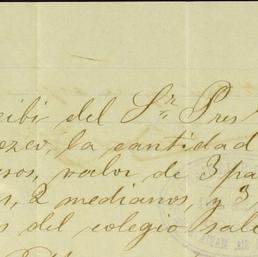 cibí del Sr. Pres
ozco, la cantidad
sos, valor de 3 pa
s, 2 medianos, y 3
s del colegio sale